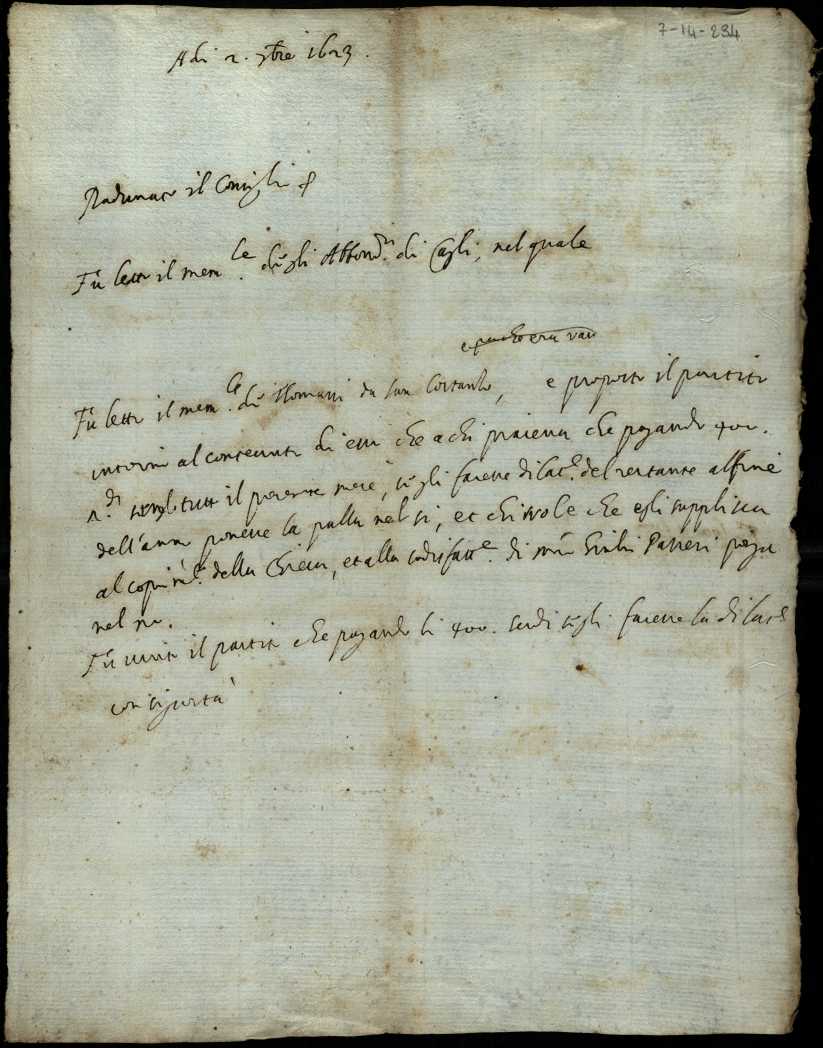 7-14-234
Adi 2. 7bre 1623.
Radunato il Consiglio
Fù letto il mem.le degli di Cagli, nel quale
e
Fù letto il mem.le de da san Costanzo, e proposto il partito
intorno al contenuto di esso che a chi piaceva che pagando 400.
tutto il presente mese, se gli facesse dilat.e del restante alfine
dell'anno ponesse la palla nel si, et chi vole che egli supplisca
al della Chiesa, et alla di Passeri ponga
nel no.
Fù vinto il partito che pagando li 400. scudi se gli facesse la dilat.e
con sigurtà